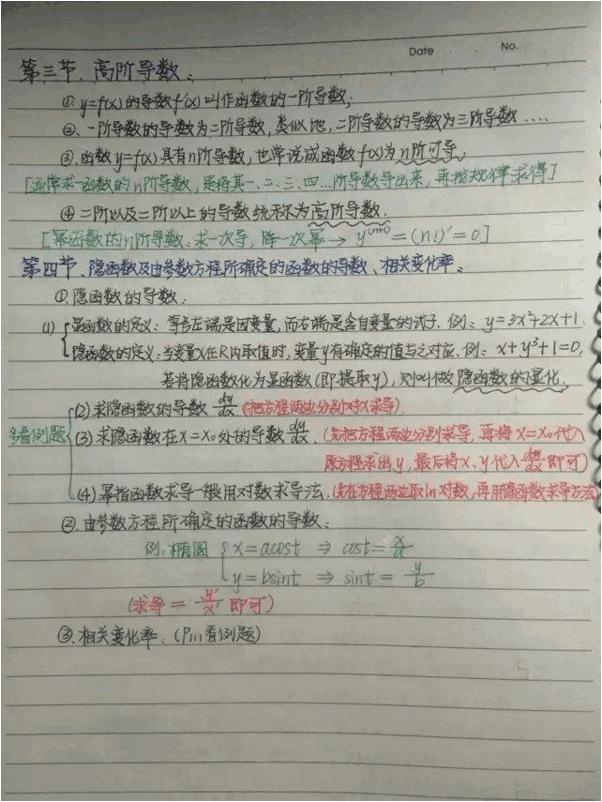 Date . . No.
第三节、高阶导数:
①. y=f(x)的导数f'(x)叫作函数的一阶导数;
②. 一阶导数的导数为二阶导数, 类似地, 二阶导数的导数为三阶导数....
③. 函数y=f(x)具有n阶导数, 也常说成函数f(x)为n阶可导;
[通常求一函数的n阶导数, 是将其一、二、三、四...阶导数导出来, 再找规律求得]
④ 二阶以及二阶以上的导数统称为高阶导数.
[幂函数的n阶导数: 求一次导, 降一次幂 → y⁽ⁿ⁺¹⁾=(n!)'=0]
第四节、隐函数及由参数方程所确定的函数的导数、相关变化率:
①. 隐函数的导数:
(1) { 显函数的定义: 等号左端是因变量, 而右端是含自变量的式子. 例: y=3x²+2x+1.
隐函数的定义: 当变量x在R内取值时, 变量y有确定的值与之对应. 例: x+y³+1=0,
若将隐函数化为显函数(即提取y), 则叫做隐函数的显化.
(2) 求隐函数的导数 dy/dx (把方程两边分别对x求导)
多看例题 { (3) 求隐函数在x=x₀处的导数 dy/dx. (先把方程两边分别求导, 再将x=x₀代入
原方程求出y, 最后将x、y代入 dy/dx 即可)
(4) 幂指函数求导一般用对数求导法. (先在方程两边取ln对数, 再用隐函数求导方法)
②. 由参数方程所确定的函数的导数:
例: 椭圆 { x=acost ⇒ cost=x/a
y=bsint ⇒ sint=y/b
(求导=y'/x' 即可)
③. 相关变化率: (P111看例题)